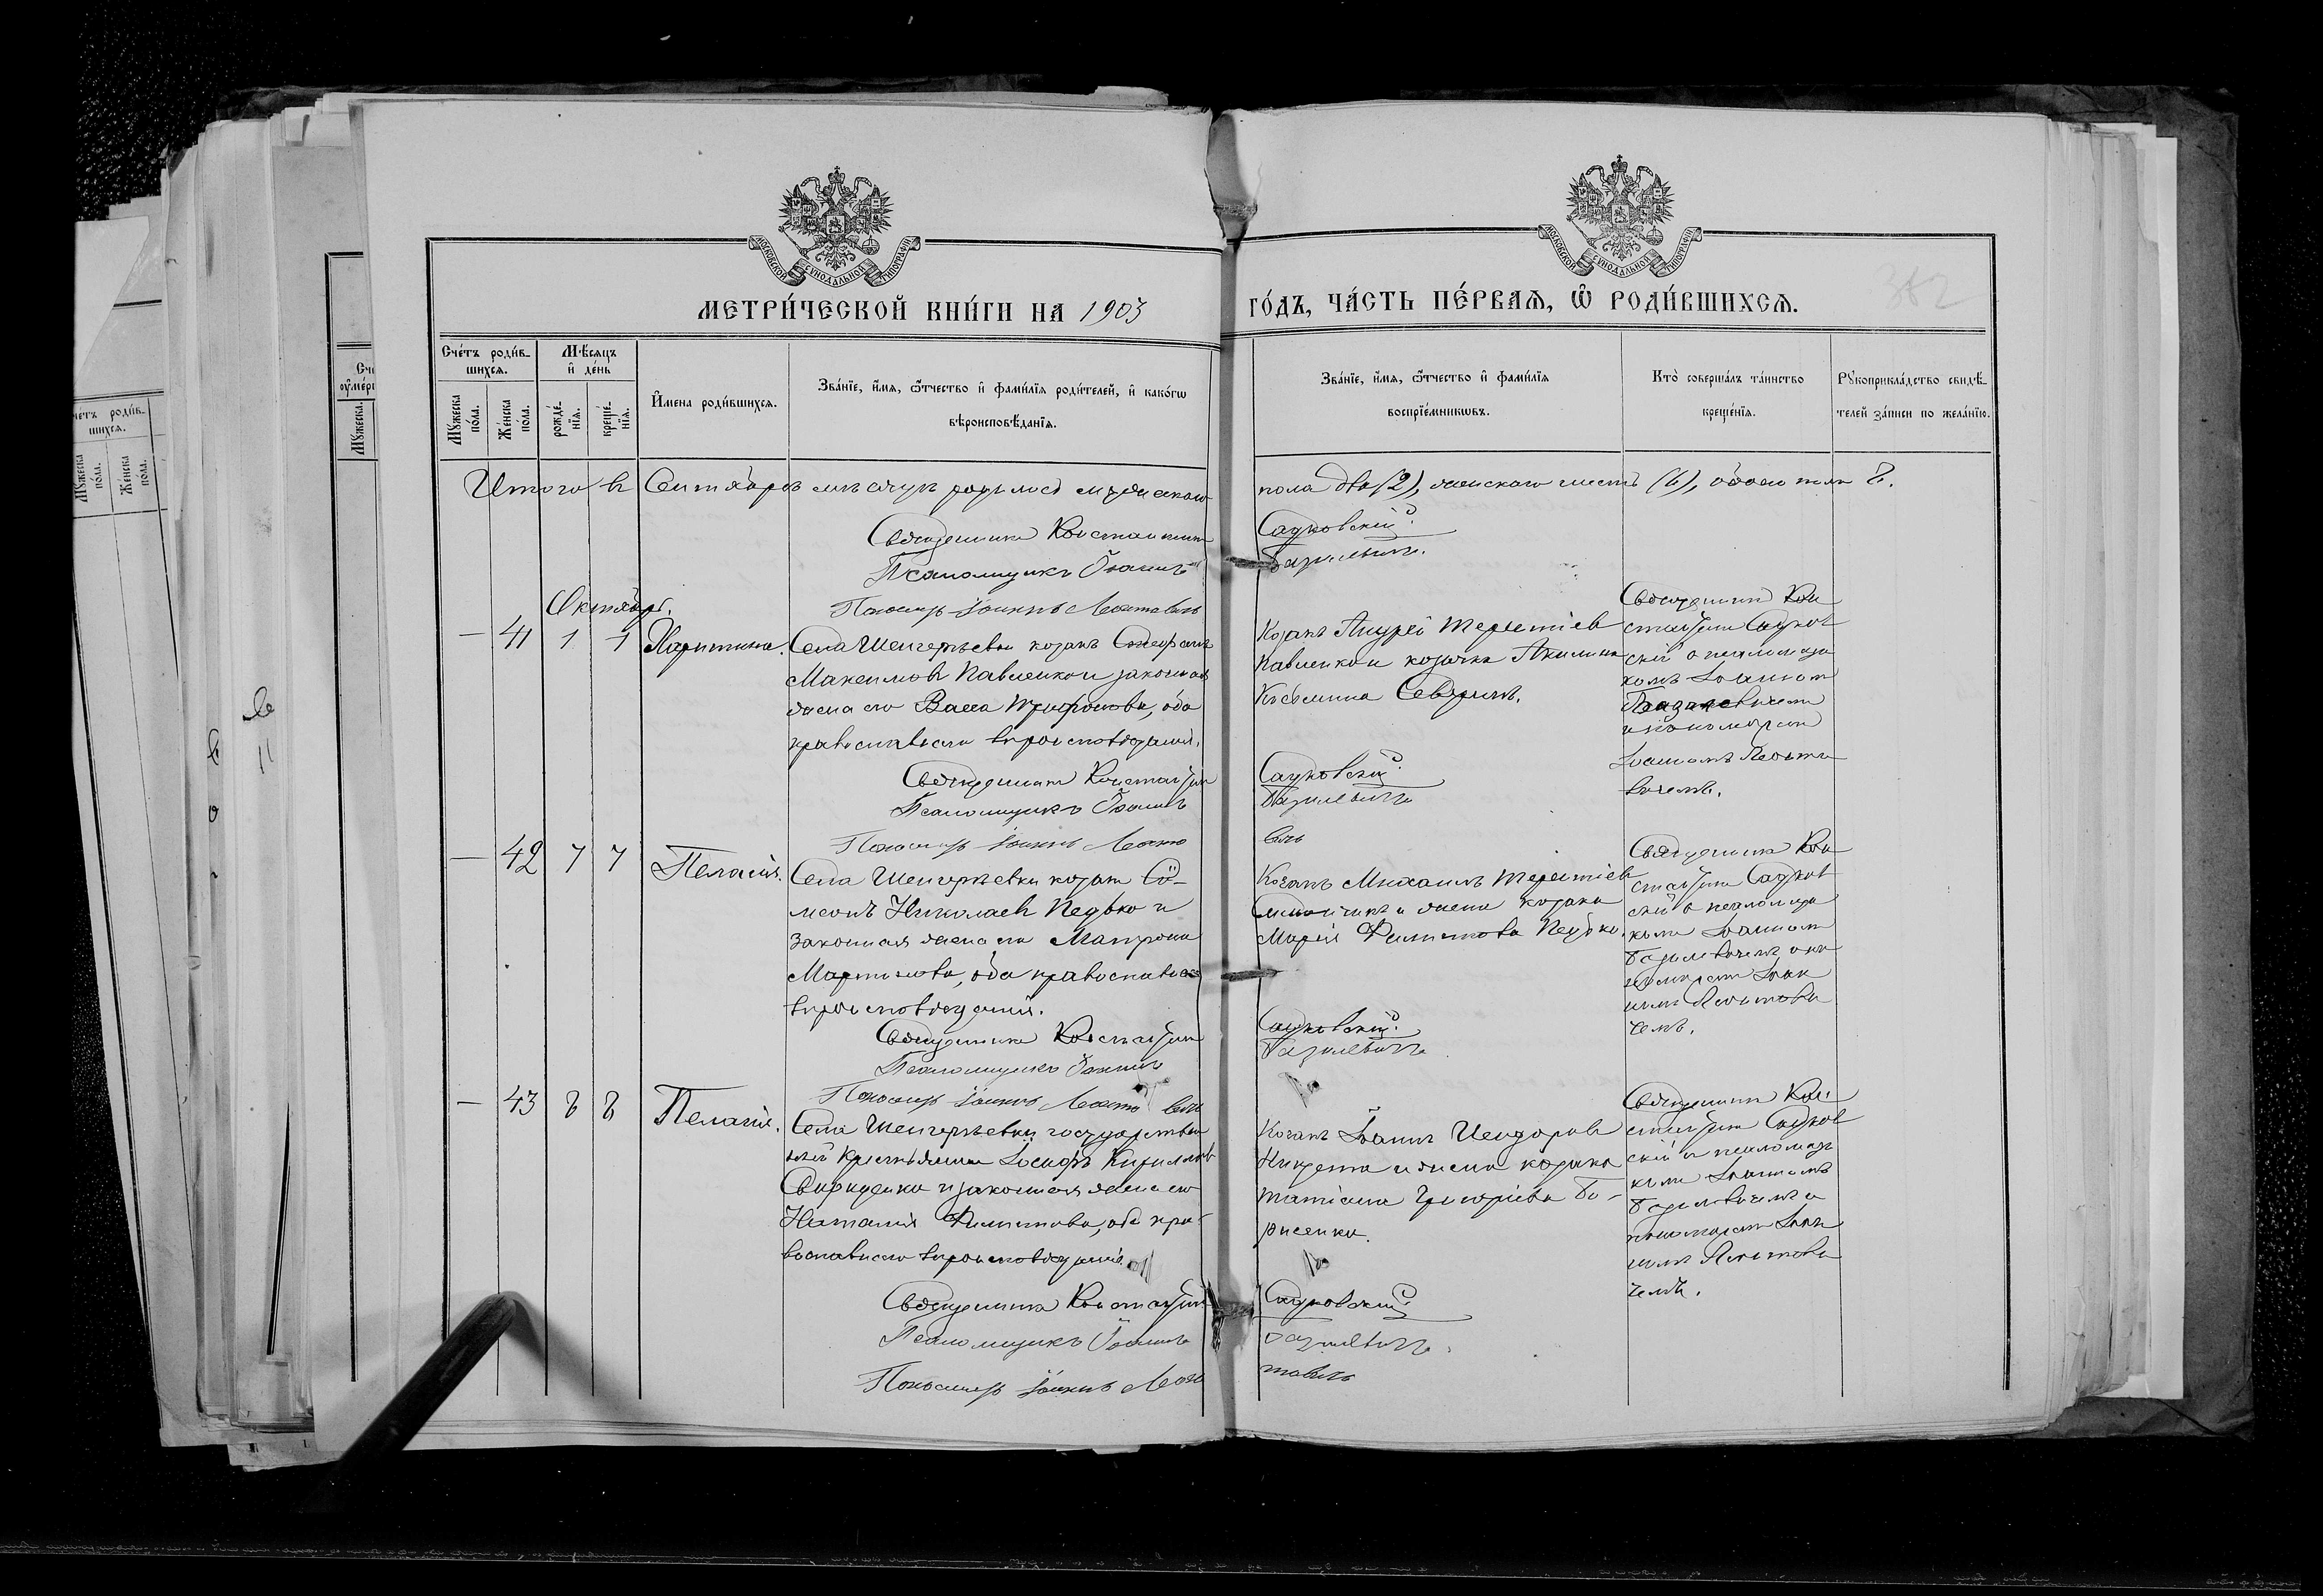 МОСКОВСКОЙ СУНОДАЛЬНОЙ ТИПОГРАФІИ
МОСКОВСКОЙ СУНОДАЛЬНОЙ ТИПОГРАФІИ
МЕТРИ́ЧЕСКОЙ КНИ́ГИ НА 1903
ГО́ДЪ, ЧА́СТЬ ПЕ́РВАѦ, Ѽ РОДИ́ВШИХСѦ.
362
Сче́тъ роди́в-
шихсѧ.
Мꙋжеска по́ла.
Же́нска по́ла.
Мѣ́сѧцъ и҆ де́нь
рожде́-нїѧ.
креще́-нїѧ.
И҆мена роди́вшихсѧ.
Зва́нїе, и҆́мѧ, ѻ҆́тчество и҆ фами́лїѧ роди́телей, и҆ како́гѡ
вѣроисповѣ́данїѧ.
Зва́нїе, и҆́мѧ, ѻ҆́тчество и҆ фами́лїѧ
воспрїе́мникѡвъ.
Кто̀ соверша́лъ та́инство
креще́нїѧ.
Рꙋкоприкла́дство свидѣ́-
телей за́писи по жела́нїю.
Итого въ Сентябрѣ мѣсяцѣ родилось мужескаго
пола два (2), женскаго шесть (6), обоего пола 8.
Священникъ Константинъ Садковскій
Псаломщикъ Іоаннъ Базилевичъ.
Пономарь Іоаннъ Леонтовичъ
Октябрь.
— 41 1 1 Харитина.
Села Шенгерѣевки козакъ Стефанъ
Максимовъ Павленко и законная
жена его Васса Трифонова, оба
православнаго вѣроисповѣданія.
Козакъ Андрей Терентіев
Павленко и козачка Акилина
Косьмина Северинъ.
Священникъ Кон
стантинъ Садков
скій с псаломщи
комъ Іоанномъ
Базилевичемъ
и пономаремъ
Іоанномъ Леонто
вичемъ.
Священникъ Константинъ Садковскій
Псаломщикъ Іоаннъ Базилевичъ
Пономарь Іоаннъ Леонто вичъ
— 42 7 7 Пелагія.
Села Шенгерѣевки козакъ Сѵ-
меонъ Николаевъ Педько и
законная жена его Матрона
Мартинова, оба православнаго
вѣроисповѣданія.
Козакъ Михаилъ Терентіев
и жена козака
Марія Филипова Педько.
Священникъ Кон
стантинъ Садков
скій с псаломщи
комъ Іоанномъ
Базилевичемъ и по
номаремъ Іоан
номъ Леонтови
чемъ.
Священникъ Константинъ Садковскій
Псаломщикъ Іоаннъ Базилевичъ
Пономарь Іоаннъ Леонто вичъ
— 43 8 8 Пелагія.
Села Шенгерѣевки государствен
ный крестьянинъ Іосифъ Кирилловъ
Свириденко и законная жена его
Наталія Филипова, оба пра-
вославнаго вѣроисповѣданія.
Козакъ Іоаннъ Исидоровъ
и жена козака
Татіана Григоріева Бо-
рисенко.
Священникъ Кон
стантинъ Садков
скій с псаломщи
комъ Іоанномъ
Базилевичемъ и
пономаремъ Іоан
номъ Леонтови
чемъ.
Священникъ Константинъ Садковскій
Псаломщикъ Іоаннъ Базилевичъ.
Пономарь Іоаннъ Леон товичъ